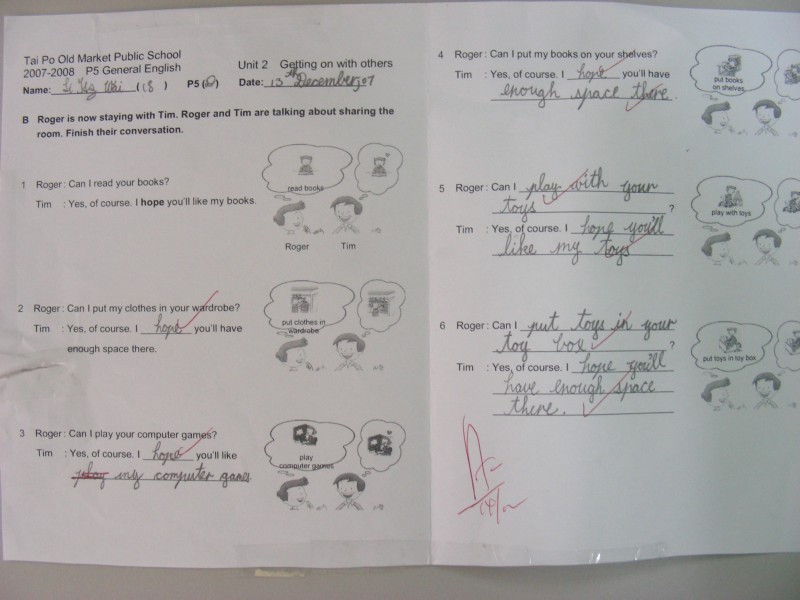 Tai Po Old Market Public School
2007-2008 P5 General English
Unit 2 Getting on with others
Name: (18) P5 ( )
Date: 13th December, 07
B Roger is now staying with Tim. Roger and Tim are talking about sharing the
room. Finish their conversation.
1 Roger : Can I read your books?
Tim : Yes, of course. I hope you'll like my books.
read books
Roger Tim
2 Roger : Can I put my clothes in your wardrobe?
Tim : Yes, of course. I hope you'll have
enough space there.
put clothes in
wardrobe
3 Roger : Can I play your computer games?
Tim : Yes, of course. I hope you'll like
play my computer games
play
computer games
4 Roger : Can I put my books on your shelves?
Tim : Yes, of course. I hope you'll have
enough space there.
put books
on shelves
5 Roger : Can I play with your
toys ?
Tim : Yes, of course. I hope you'll
like my toys
play with toys
6 Roger : Can I put toys in your
toy box ?
Tim : Yes, of course. I hope you'll
have enough space
there.
put toys in toy box